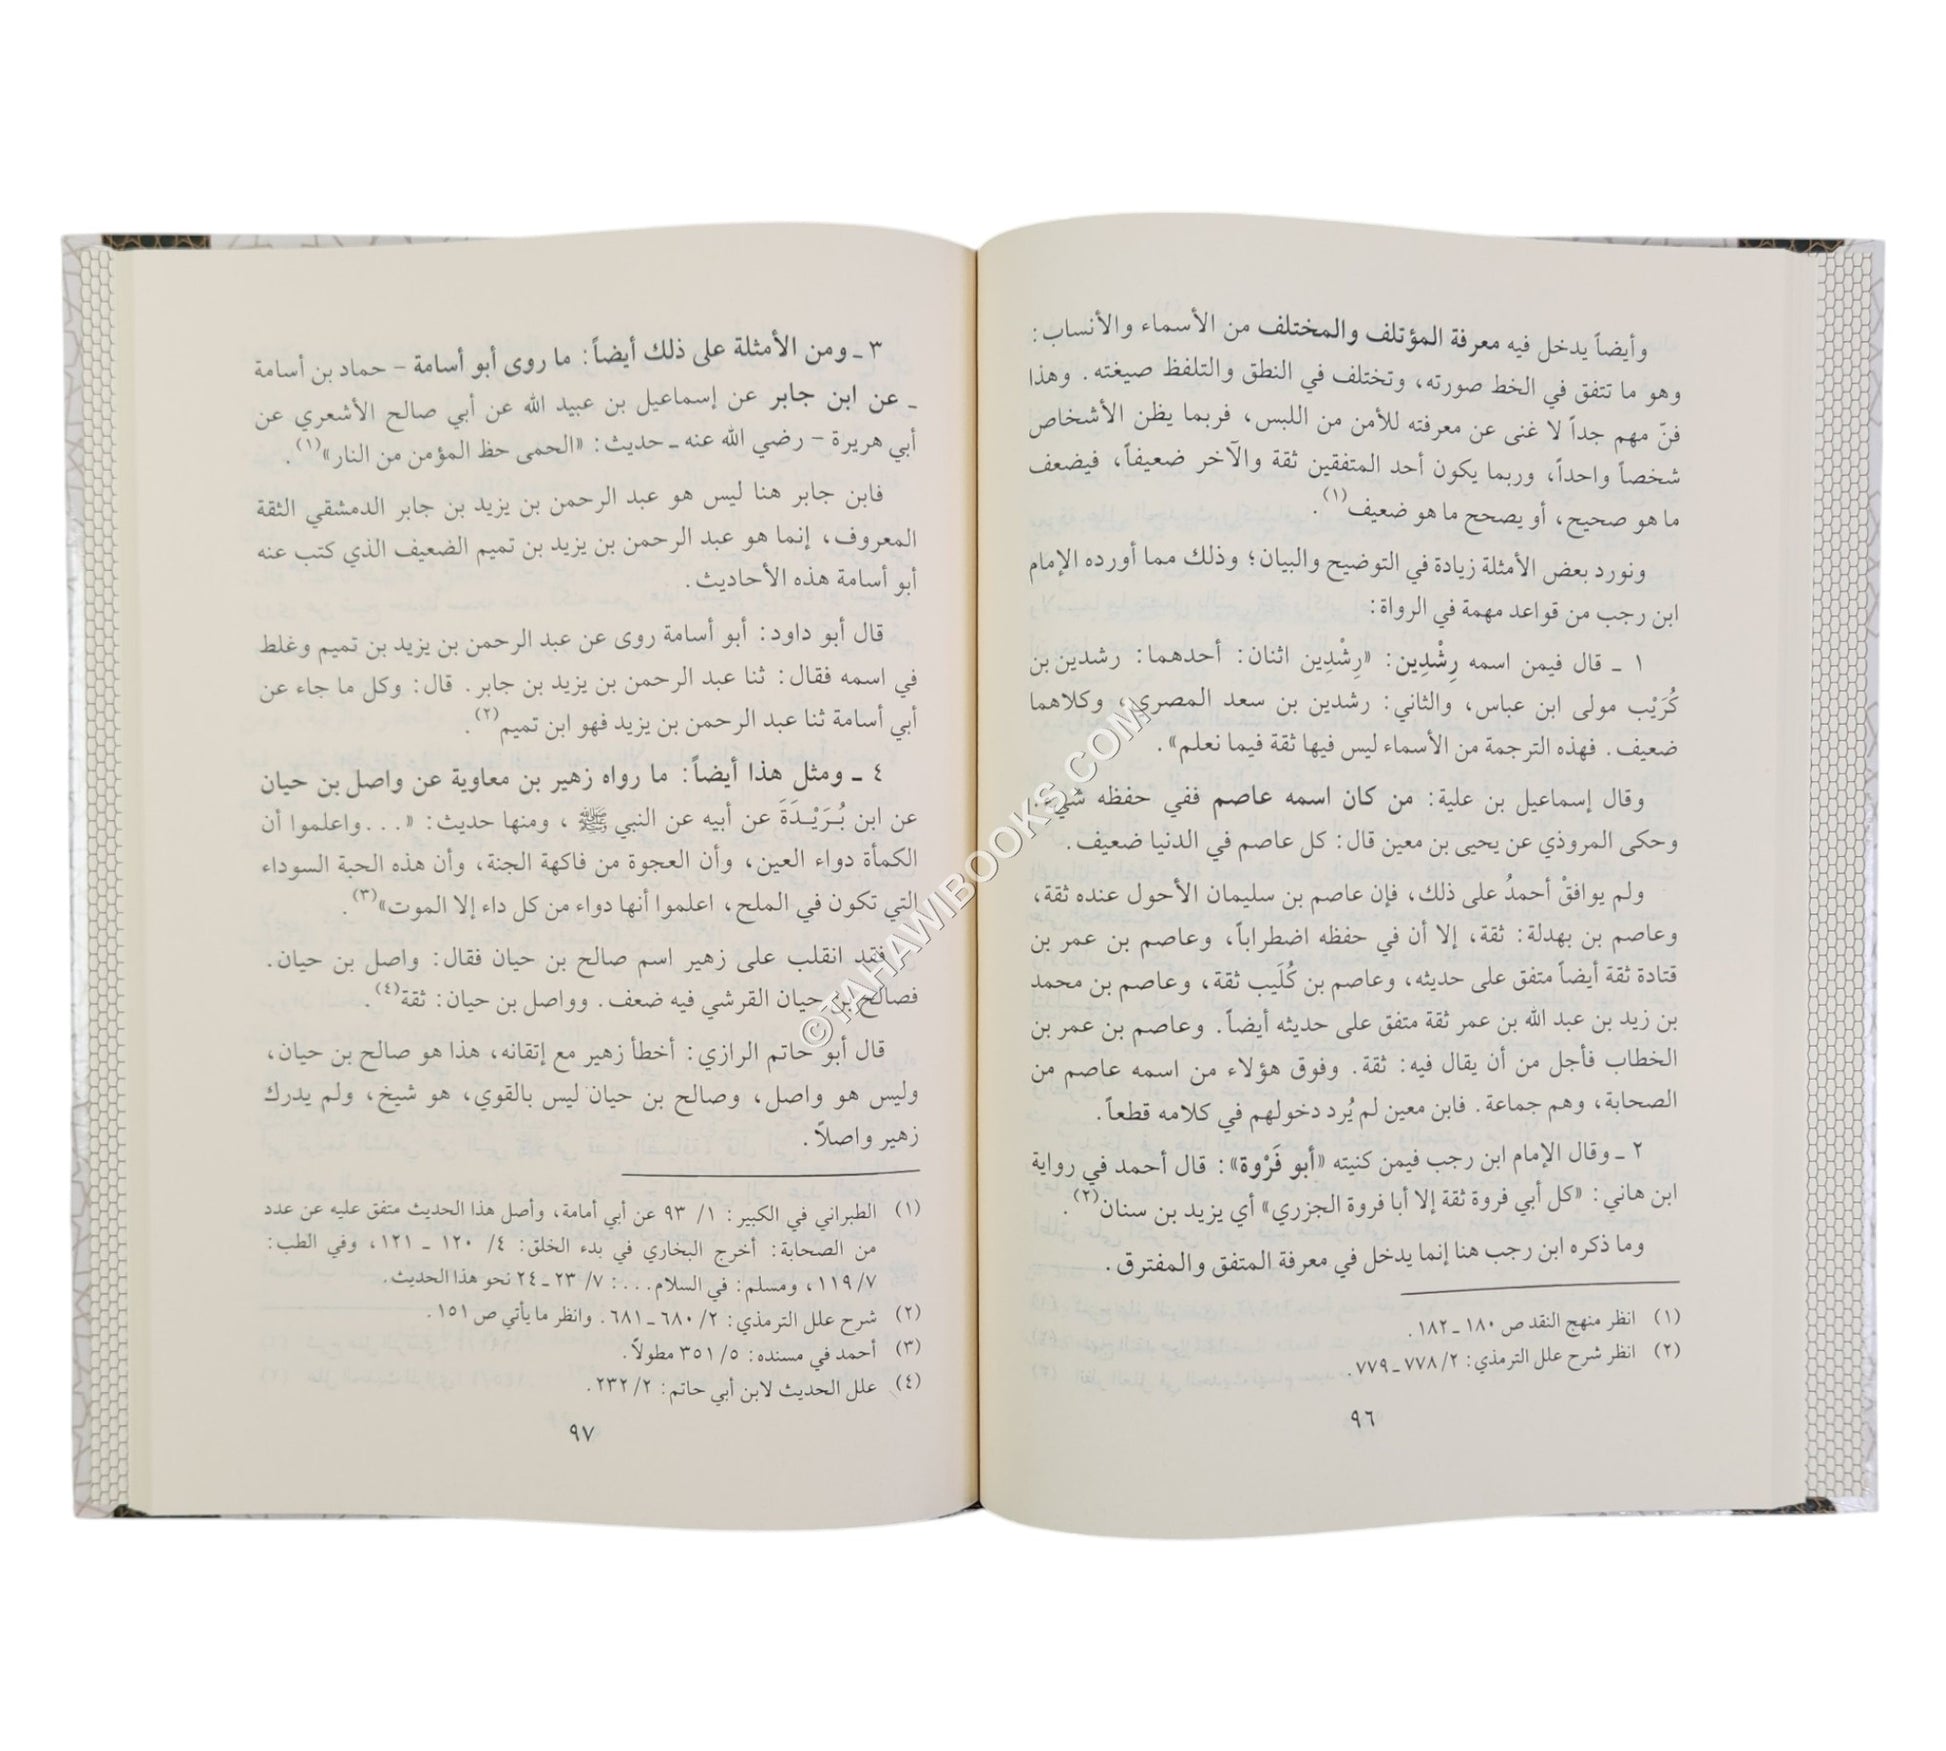 وأيضاً يدخل فيه معرفة المؤتلف والمختلف من الأسماء والأنساب:
وهو ما تتفق في الخط صورته، وتختلف في النطق والتلفظ صيغته. وهذا
فنّ مهم جداً لا غنى عن معرفته للأمن من اللبس، فربما يظن الأشخاص
شخصاً واحداً، وربما يكون أحد المتفقين ثقة والآخر ضعيفاً، فيضعف
ما هو صحيح، أو يصحح ما هو ضعيف(١).
ونورد بعض الأمثلة زيادة في التوضيح والبيان؛ وذلك مما أورده الإمام
ابن رجب من قواعد مهمة في الرواة:
١ ـ قال فيمن اسمه رِشْدِين: «رِشْدِين اثنان: أحدهما: رشدين بن
كُرَيْب مولى ابن عباس، والثاني: رشدين بن سعد المصري، وكلاهما
ضعيف. فهذه الترجمة من الأسماء ليس فيها ثقة فيما نعلم».
وقال إسماعيل بن علية: من كان اسمه عاصم ففي حفظه شيء.
وحكى المروذي عن يحيى بن معين قال: كل عاصم في الدنيا ضعيف.
ولم يوافقْ أحمدُ على ذلك، فإن عاصم بن سليمان الأحول عنده ثقة،
وعاصم بن بهدلة: ثقة، إلا أن في حفظه اضطراباً، وعاصم بن عمر بن
قتادة ثقة أيضاً متفق على حديثه، وعاصم بن كُلَيب ثقة، وعاصم بن محمد
بن زيد بن عبد الله بن عمر ثقة متفق على حديثه أيضاً. وعاصم بن عمر بن
الخطاب فأجل من أن يقال فيه: ثقة. وفوق هؤلاء من اسمه عاصم من
الصحابة، وهم جماعة. فابن معين لم يُرد دخولهم في كلامه قطعاً.
٢ ـ وقال الإمام ابن رجب فيمن كنيته «أبو فَرْوة»: قال أحمد في رواية
ابن هاني: «كل أبي فروة ثقة إلا أبا فروة الجزري» أي يزيد بن سنان(٢).
وما ذكره ابن رجب هنا إنما يدخل في معرفة المتفق والمفترق.
(١) انظر منهج النقد ص ١٨٠ ـ ١٨٢.
(٢) انظر شرح علل الترمذي: ٢/ ٧٧٨ ـ ٧٧٩.
٩٦
٣ ـ ومن الأمثلة على ذلك أيضاً: ما روى أبو أسامة - حماد بن أسامة
ـ عن ابن جابر عن إسماعيل بن عبيد الله عن أبي صالح الأشعري عن
أبي هريرة - رضي الله عنه ـ حديث: «الحمى حظ المؤمن من النار»(١).
فابن جابر هنا ليس هو عبد الرحمن بن يزيد بن جابر الدمشقي الثقة
المعروف، إنما هو عبد الرحمن بن يزيد بن تميم الضعيف الذي كتب عنه
أبو أسامة هذه الأحاديث.
قال أبو داود: أبو أسامة روى عن عبد الرحمن بن يزيد بن تميم وغلط
في اسمه فقال: ثنا عبد الرحمن بن يزيد بن جابر. قال: وكل ما جاء عن
أبي أسامة ثنا عبد الرحمن بن يزيد فهو ابن تميم(٢).
٤ ـ ومثل هذا أيضاً: ما رواه زهير بن معاوية عن واصل بن حيان
عن ابن بُرَيْدَةَ عن أبيه عن النبي ﷺ، ومنها حديث: «...واعلموا أن
الكمأة دواء العين، وأن العجوة من فاكهة الجنة، وأن هذه الحبة السوداء
التي تكون في الملح، اعلموا أنها دواء من كل داء إلا الموت»(٣).
فقد انقلب على زهير اسم صالح بن حيان فقال: واصل بن حيان.
فصالح بن حيان القرشي فيه ضعف. وواصل بن حيان: ثقة(٤).
قال أبو حاتم الرازي: أخطأ زهير مع إتقانه، هذا هو صالح بن حيان،
وليس هو واصل، وصالح بن حيان ليس بالقوي، هو شيخ، ولم يدرك
زهير واصلاً.
(١) الطبراني في الكبير: ١/ ٩٣ عن أبي أمامة، وأصل هذا الحديث متفق عليه عن عدد
من الصحابة: أخرج البخاري في بدء الخلق: ٤/ ١٢٠ ـ ١٢١، وفي الطب:
٧/ ١١٩، ومسلم: في السلام...: ٧/ ٢٣ ـ ٢٤ نحو هذا الحديث.
(٢) شرح علل الترمذي: ٢/ ٦٨٠ ـ ٦٨١. وانظر ما يأتي ص ١٥١.
(٣) أحمد في مسنده: ٥/ ٣٥١ مطولاً.
(٤) علل الحديث لابن أبي حاتم: ٢/ ٢٣٢.
٩٧
©TAHAWIBOOKS.COM